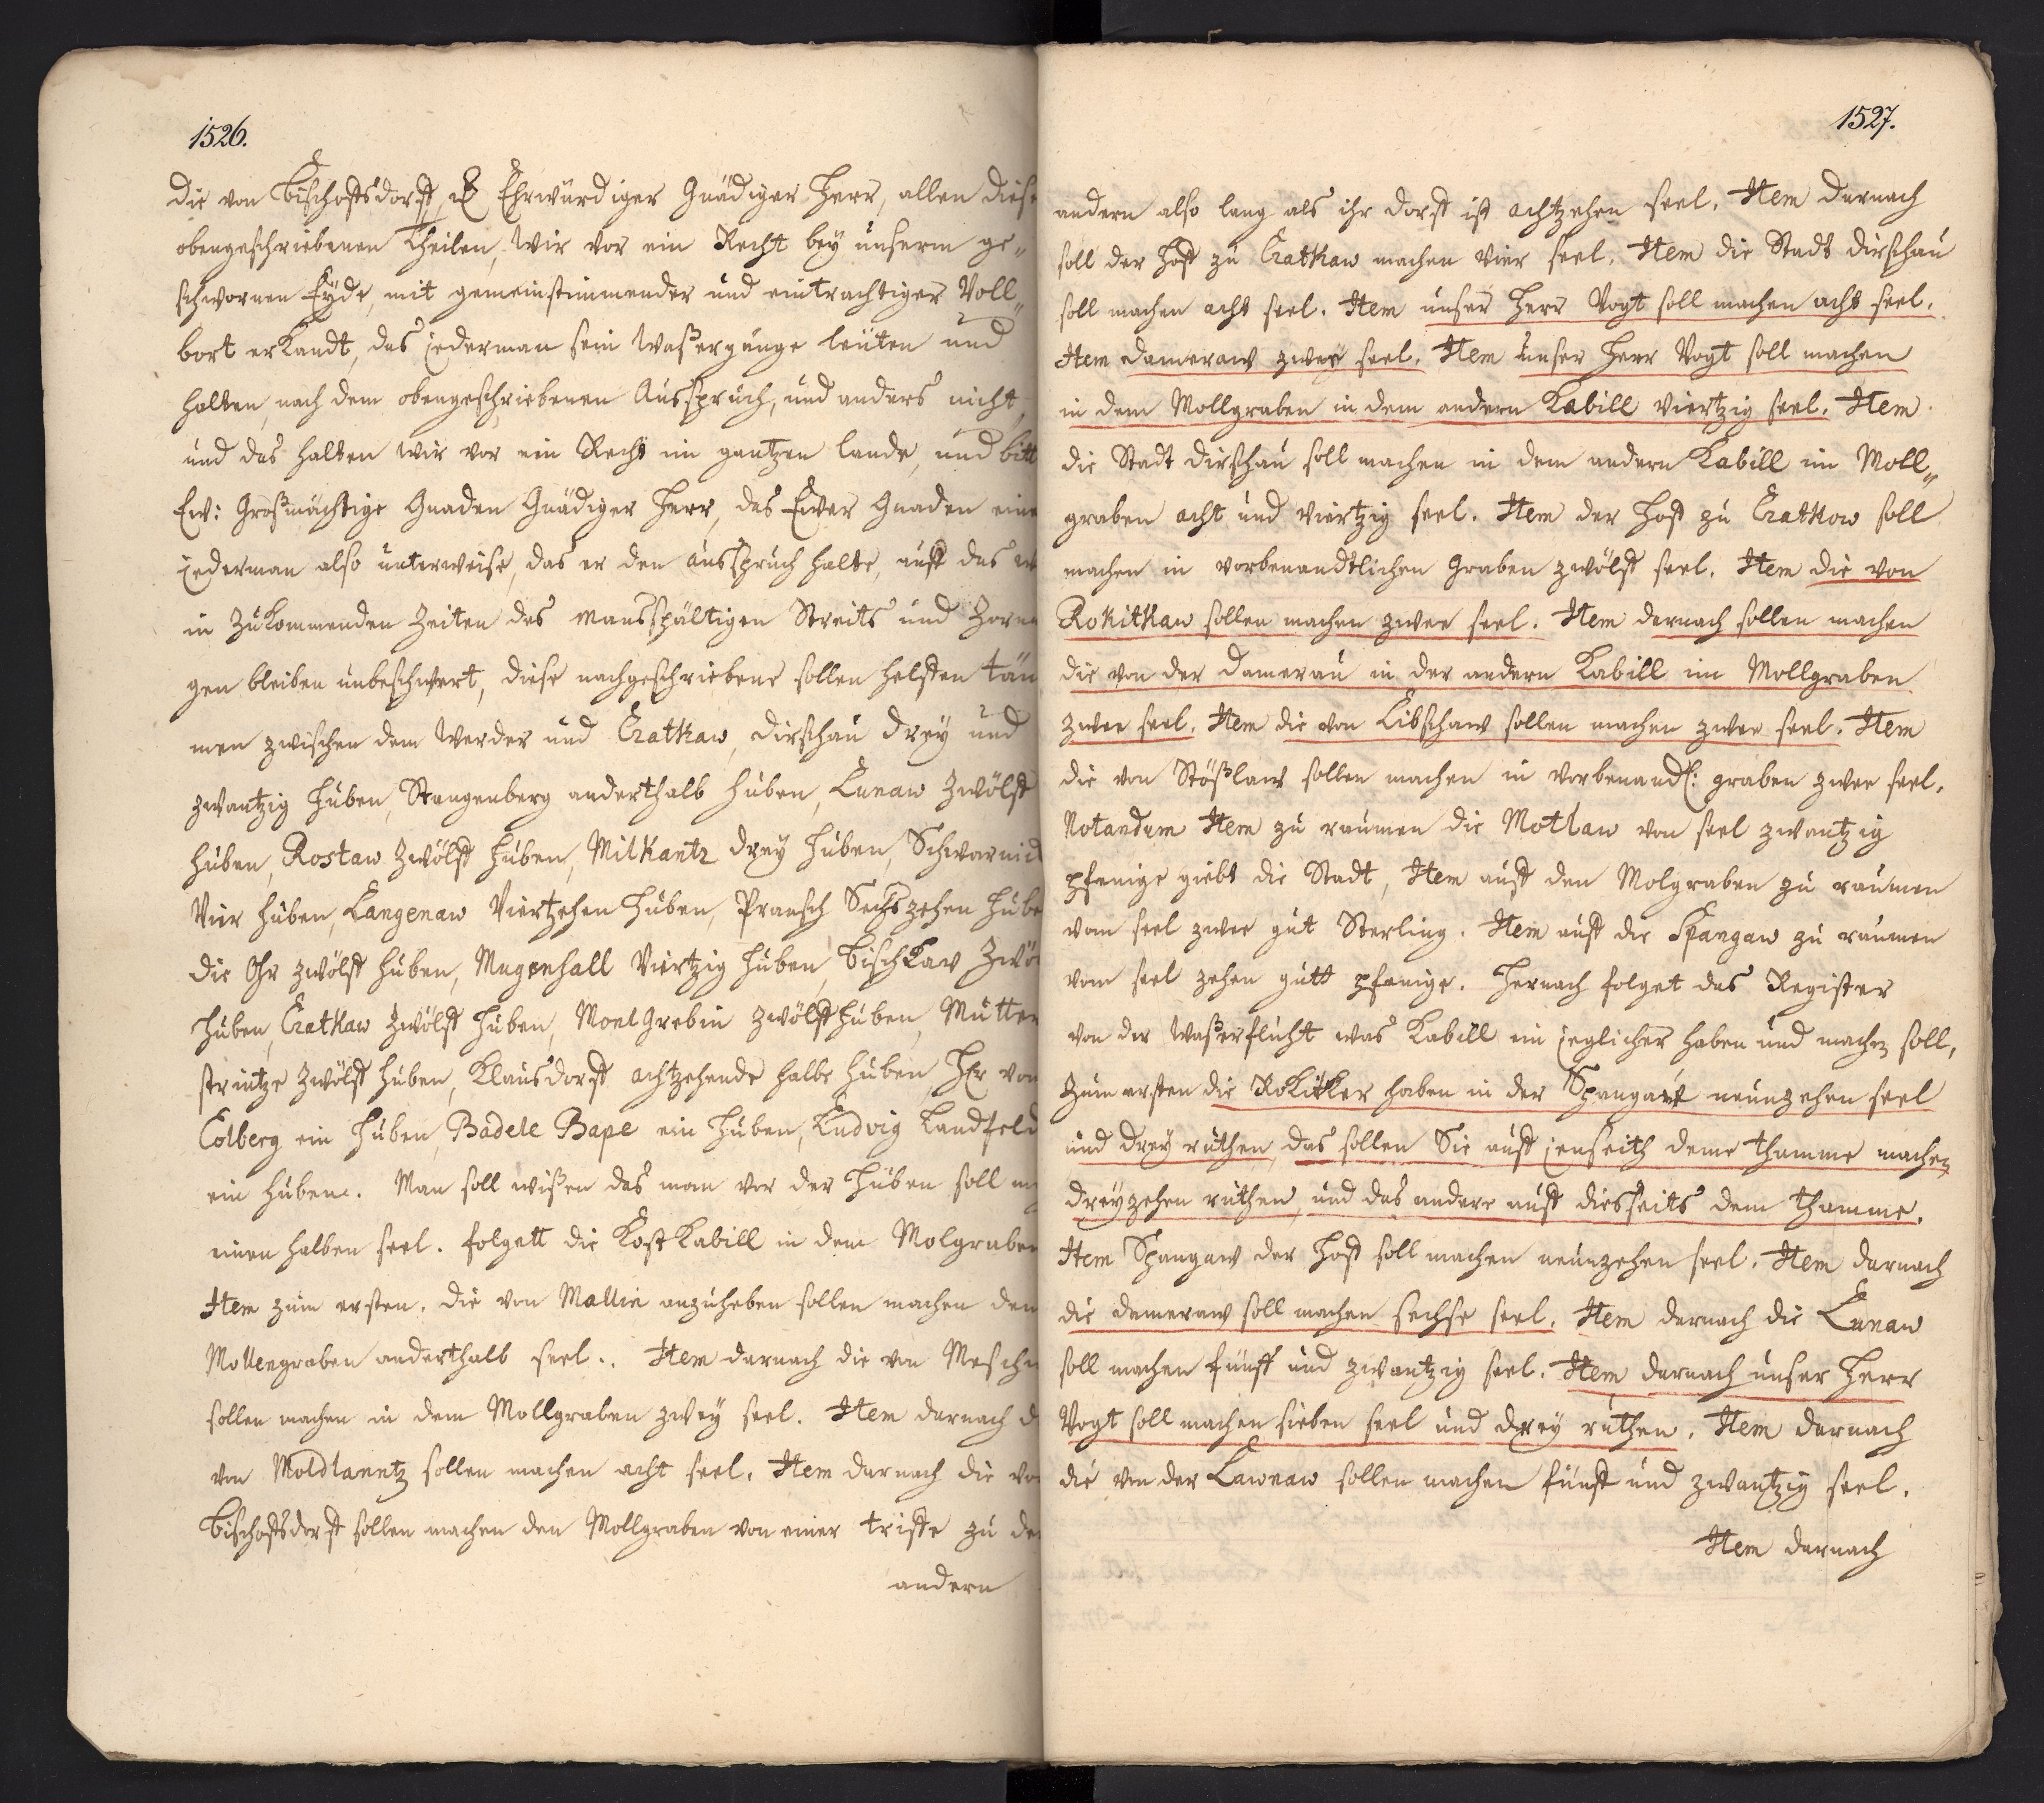 1526.
die von Bischoffsdorff, etc Ehrwürdiger Gnädiger Herr, allen diese
obengeschriebenen Theilen, Wir vor ein Recht bey unserm ge„
schwornen Eyde, mit gemeinstimmender und eintrachtiger Voll„
bort erkandt, das jederman sein Waßergänge leuten und
halten, nach dem obengeschriebenen Ausspruch, und anders nicht,
und das halten wir vor ein Recht im gantzen lande, und bitt
Ew: Großmächtige Gnaden Gnädiger Herr, das Ewer Gnaden eine
jederman also unterweise, das er den ausspruch halte, auff das
in Zukommenden Zeiten des manspältigen Streits und Zorne
gen bleiben unbeschwert, diese nachgeschriebene sollen helffen täm
men zwischen dem Werder und Czatkaw, Dirschau drey und
zwantzig Huben, Stangenberg anderthalb Huben, Lunaw Zwölff
Huben, Rostaw Zwölff Huben, Milkantz drey Huben, Schwarnid
Vier Huben, Langenaw Viertzehen Huben, Pransch Sechszehen Hube
die Ohr zwölff Huben, Mugenhall Viertzig Huben, Bischkav Zwö
Huben, Czatkaw Zwölff Huben, Montgrebin Zwölff Huben, Mutter
strintze Zwölff Huben, Klausdorff achtzehende halbe Huben, Hr von
Colberg ein Huben, Badele Bape ein Huben, Ludvig Landfeld
ein Huben. Man soll wißen das man vor der Huben soll
einen halben seel. folgett die Kost Kabill in dem Molgraben
Item zum ersten. die von Mallin anzuheben sollen machen den
Mollengraben anderthalb seel.. Item darnach die von Mesch
sollen machen in dem Mollgraben zwey seel. Item darnach d
von Moldlanntz sollen machen acht seel. Item darnach die vo
Bischoffsdorff sollen machen den Mollgraben von einer triffe zu de
andern
1527.
andern also lang als ihr dorff ist achtzehen seel. Item darnach
soll der Hoff zu Czatkaw machen Vier seel. Item die Stadt Dirschau
soll machen acht seel. Item unser Herr Vogt soll machen acht seel.
Item Dameraw zwey seel. Item unser Herr Vogt soll machen
in dem Mollgraben in dem andern Kabill Viertzig seel. Item
die Stadt Dirschau soll machen in dem andern Kabill im Moll„
graben acht und Viertzig seel. Item der Hoff zu Czatkow soll
machen in vorbenandtlichen Graben zwölff seel. Item die von
Rokitkaw sollen machen zwee seel. Item darnach sollen machen
die von der Damerau in der andern Kabill im Mollgraben
zwee seel. Item die von Libschaw sollen machen zwee seel. Item
die von Stößlaw sollen machen in vorbenandl: graben zwee seel.
Notandum Item zu raumen die Motlaw von seel zwantzig
pfenige giebt die Stadt, Item auff den Molgraben zu raumen
vom seel zwee gut Sterling. Item auff die Spangaw zu raumen
vom seel zehen gutt pfenige. Hernach folget das Register
von der Waßerflucht was Kabill ein jeglicher haben und machen soll,
Zum ersten die Rokitker haben in der Spangaw neunzehen seel
und drey ruthen, das sollen Sie auff jenseith deme Thamme machen
dreyzehen ruthen, und das andere auff diesseits dem Thamme.
Item Spangaw der Hoff soll machen neunzehen seel. Item darnach
die Dameraw soll machen sechse seel. Item darnach die Lunaw
soll machen fünff und zwantzig seel. Item darnach unser Herr
Vogt soll machen sieben seel und drey ruthen. Item darnach
die von der Lawnaw sollen machen fünff und zwantzig seel.
Item darnach